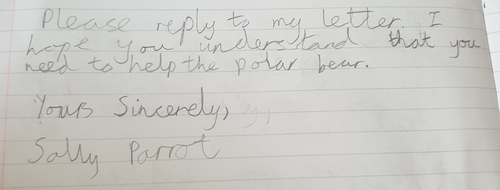 Please reply to my letter. I
hope you understand that you
need to help the polar bear.
Yours Sincerely,
Sally Parrot